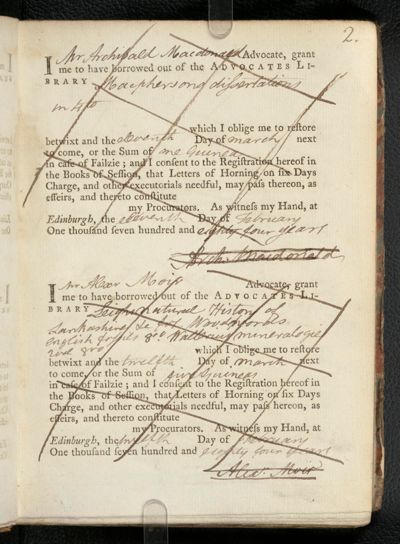 2.
I Mr. Archibald Macdonald Advocate, grant
me to have borrowed out of the ADVOCATES LI-
BRARY Macphersons dissertations
in 4to
which I oblige me to reſtore
betwixt and the eleventh Day of march next
to come, or the Sum of one Guinea
in caſe of Failzie ; and I conſent to the Regiſtration hereof in
the Books of Seſſion, that Letters of Horning on ſix Days
Charge, and other executorials needful, may paſs thereon, as
effeirs, and thereto conſtitute
my Procurators. As witneſs my Hand, at
Edinburgh, the eleventh Day of February
One thouſand ſeven hundred and eighty four years
Archd. Macdonald
I Mr Alexr Moir Advocate, grant
me to have borrowed out of the ADVOCATES LI-
BRARY Leighs natural History of
Lankashire
english fossils 8vo mineralogie
2d 8vo which I oblige me to reſtore
betwixt and the twelfth Day of march next
to come, or the Sum of five Guineas
in caſe of Failzie ; and I conſent to the Regiſtration hereof in
the Books of Seſſion, that Letters of Horning on ſix Days
Charge, and other executorials needful, may paſs thereon, as
effeirs, and thereto conſtitute
my Procurators. As witneſs my Hand, at
Edinburgh, the twelfth Day of February
One thouſand ſeven hundred and eighty four years
Alexr. Moir